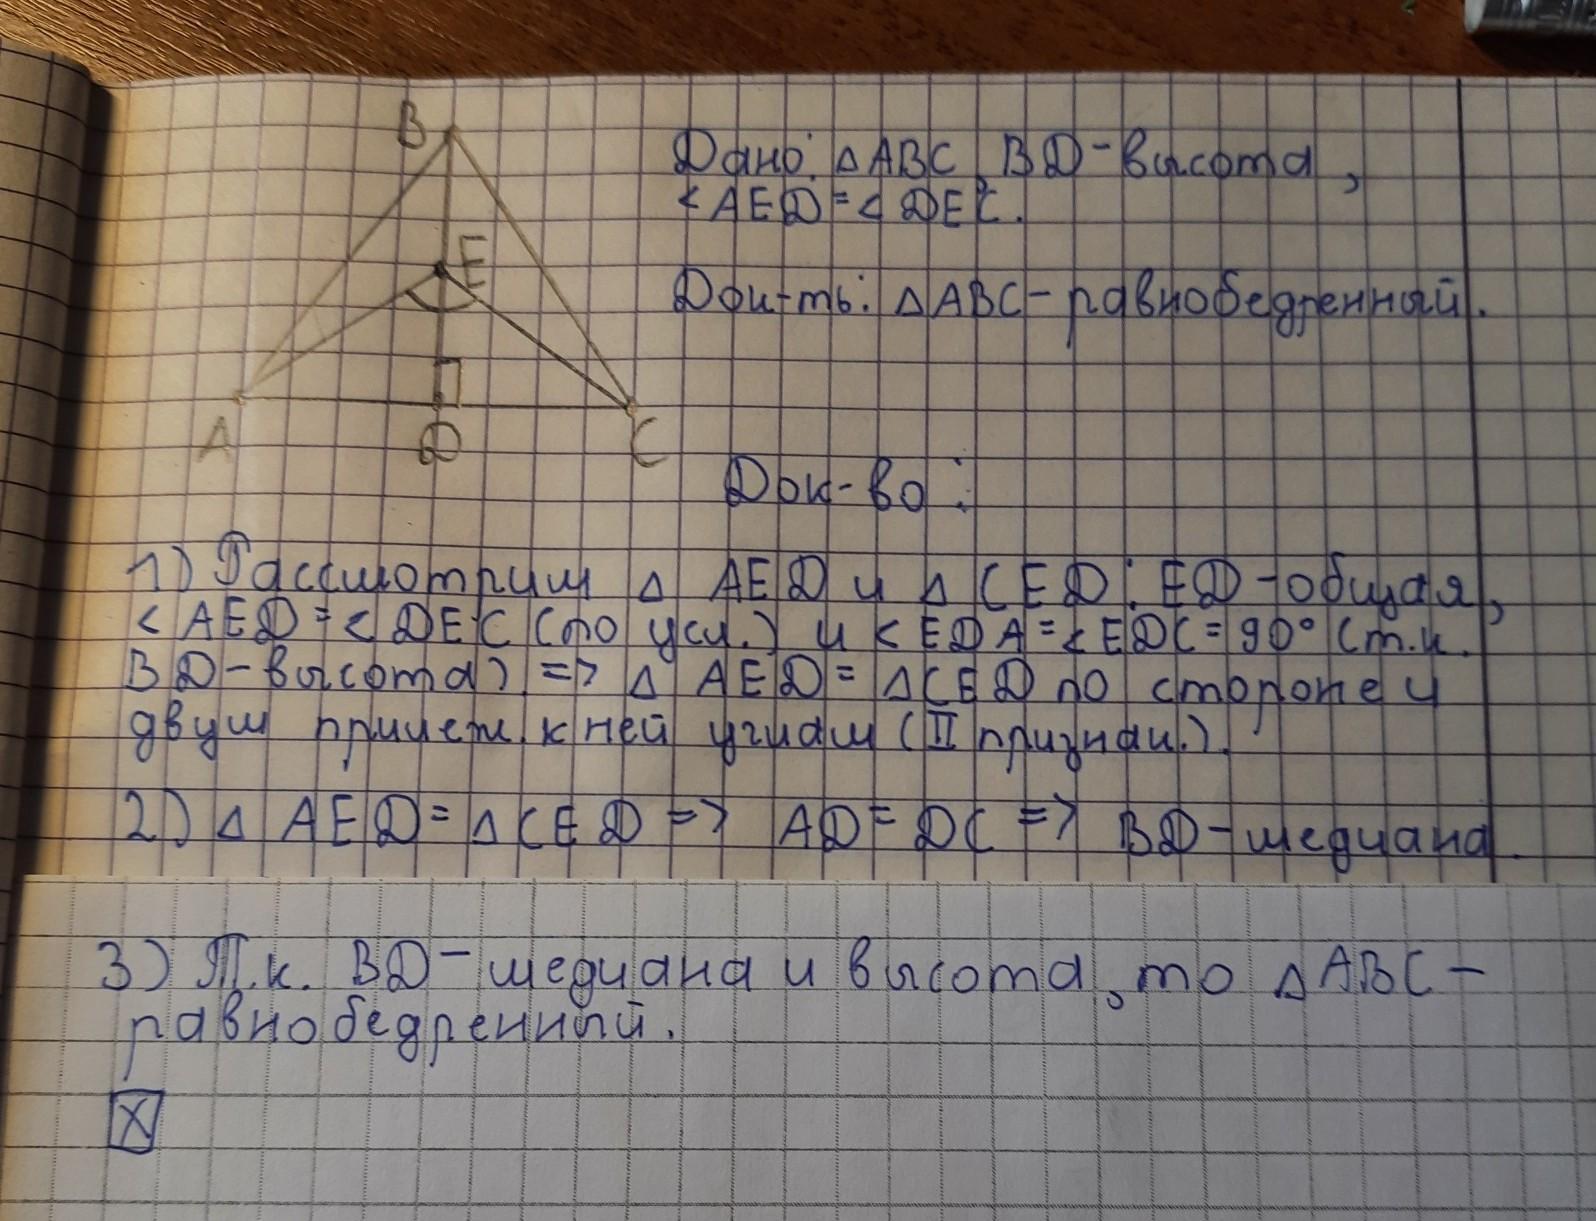 B
E
A
D
C
Дано: △ ABC, BD - высота,
< AED = < DEC.
Док-ть: △ ABC - равнобедренный.
Док-во:
1) Рассмотрим △ AED и △ CED: ED - общая,
< AED = < DEC (по усл.) и < EDA = < EDC = 90° (т.к.
BD - высота) => △ AED = △ CED по стороне и
двум прилеж. к ней углам (II признак.).
2) △ AED = △ CED => AD = DC => BD - медиана.
3) Т.к. BD - медиана и высота, то △ ABC -
равнобедренный.
X